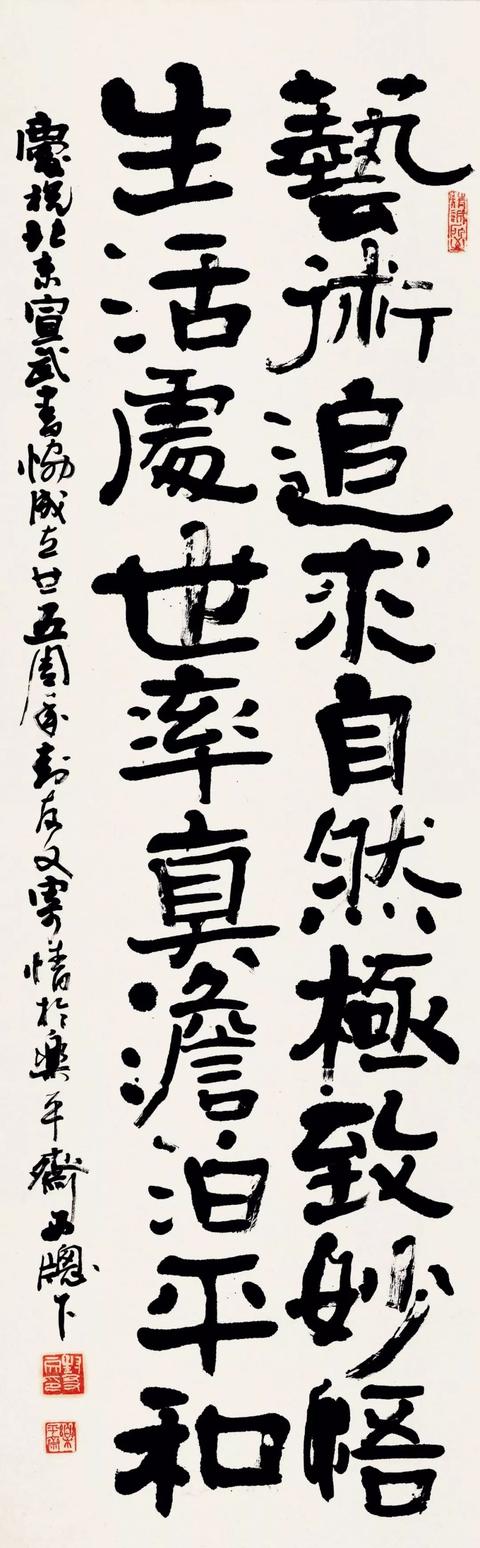 藝術追求自然極致妙悟
生活處世率真澹泊平和
慶祝北京宣武書協成立廿五周年封友文寄情於樂平齋西牕下